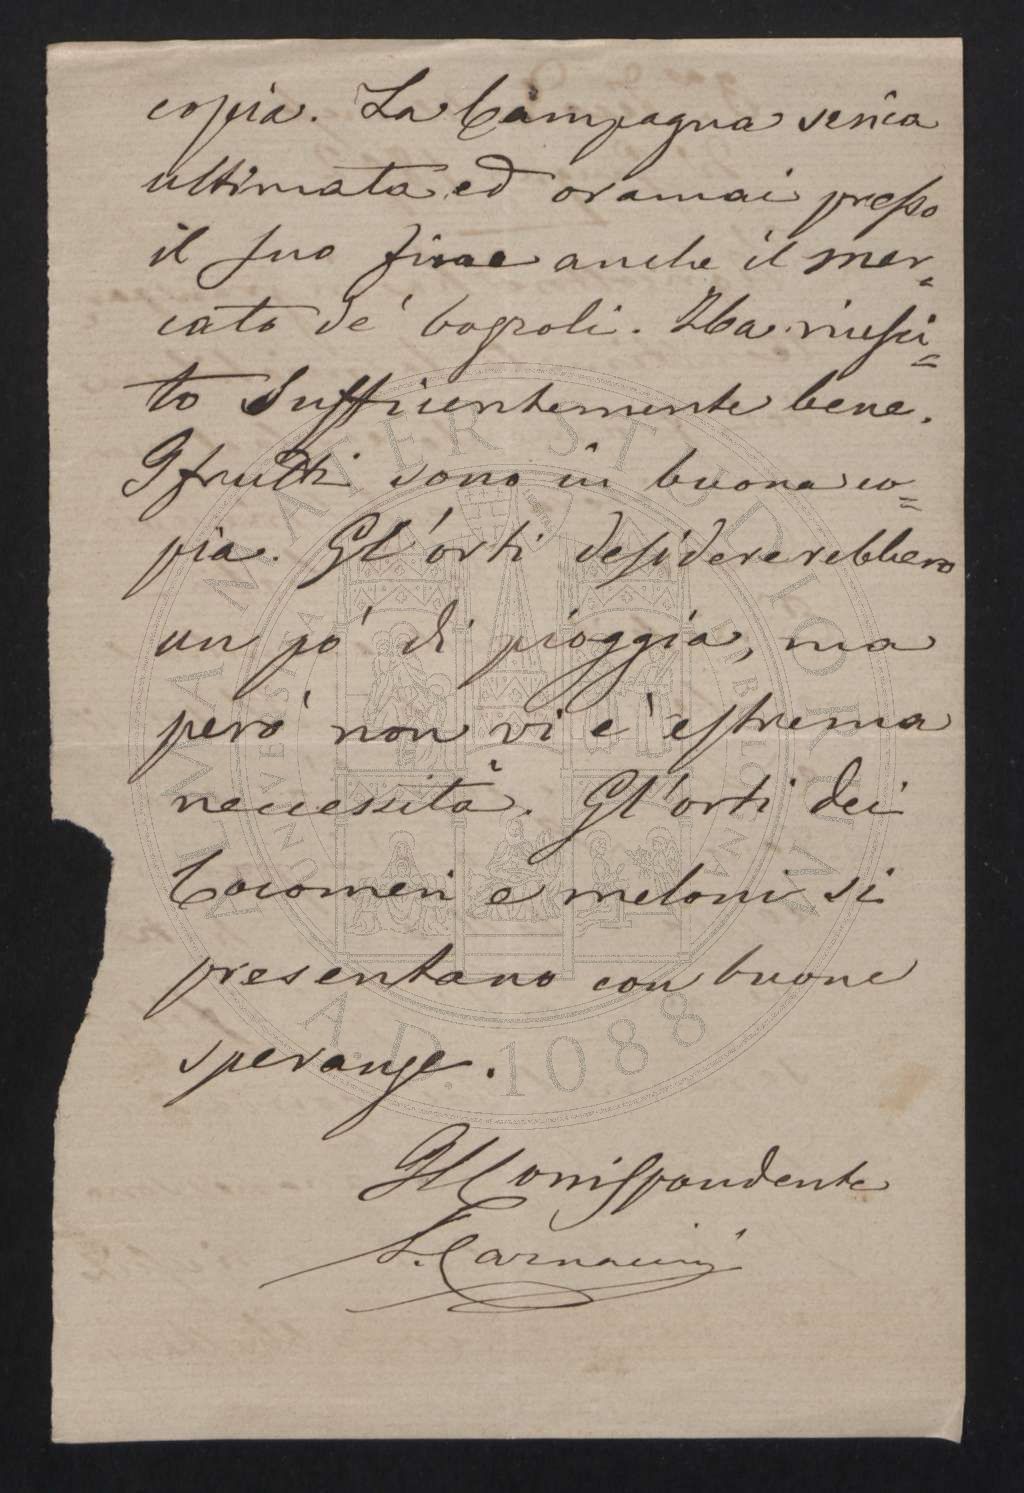 copia. La Campagna serica
ultimata ed oramai presso
il suo fine anche il mer=
cato de' bozzoli. Ha riusci=
to Sufficientemente bene.
I frutti sono in buona co=
pia. Gl'orti desidererebbero
un pò di pioggia, ma
però non vi è estrema
necessità. Gl'orti dei
Cocomeri e meloni si
presentano con buone
speranze.
Il Corrispondente
Carnacini
ALMA MATER STUDIORUM
UNIVERSITÀ DI BOLOGNA
A.D. 1088